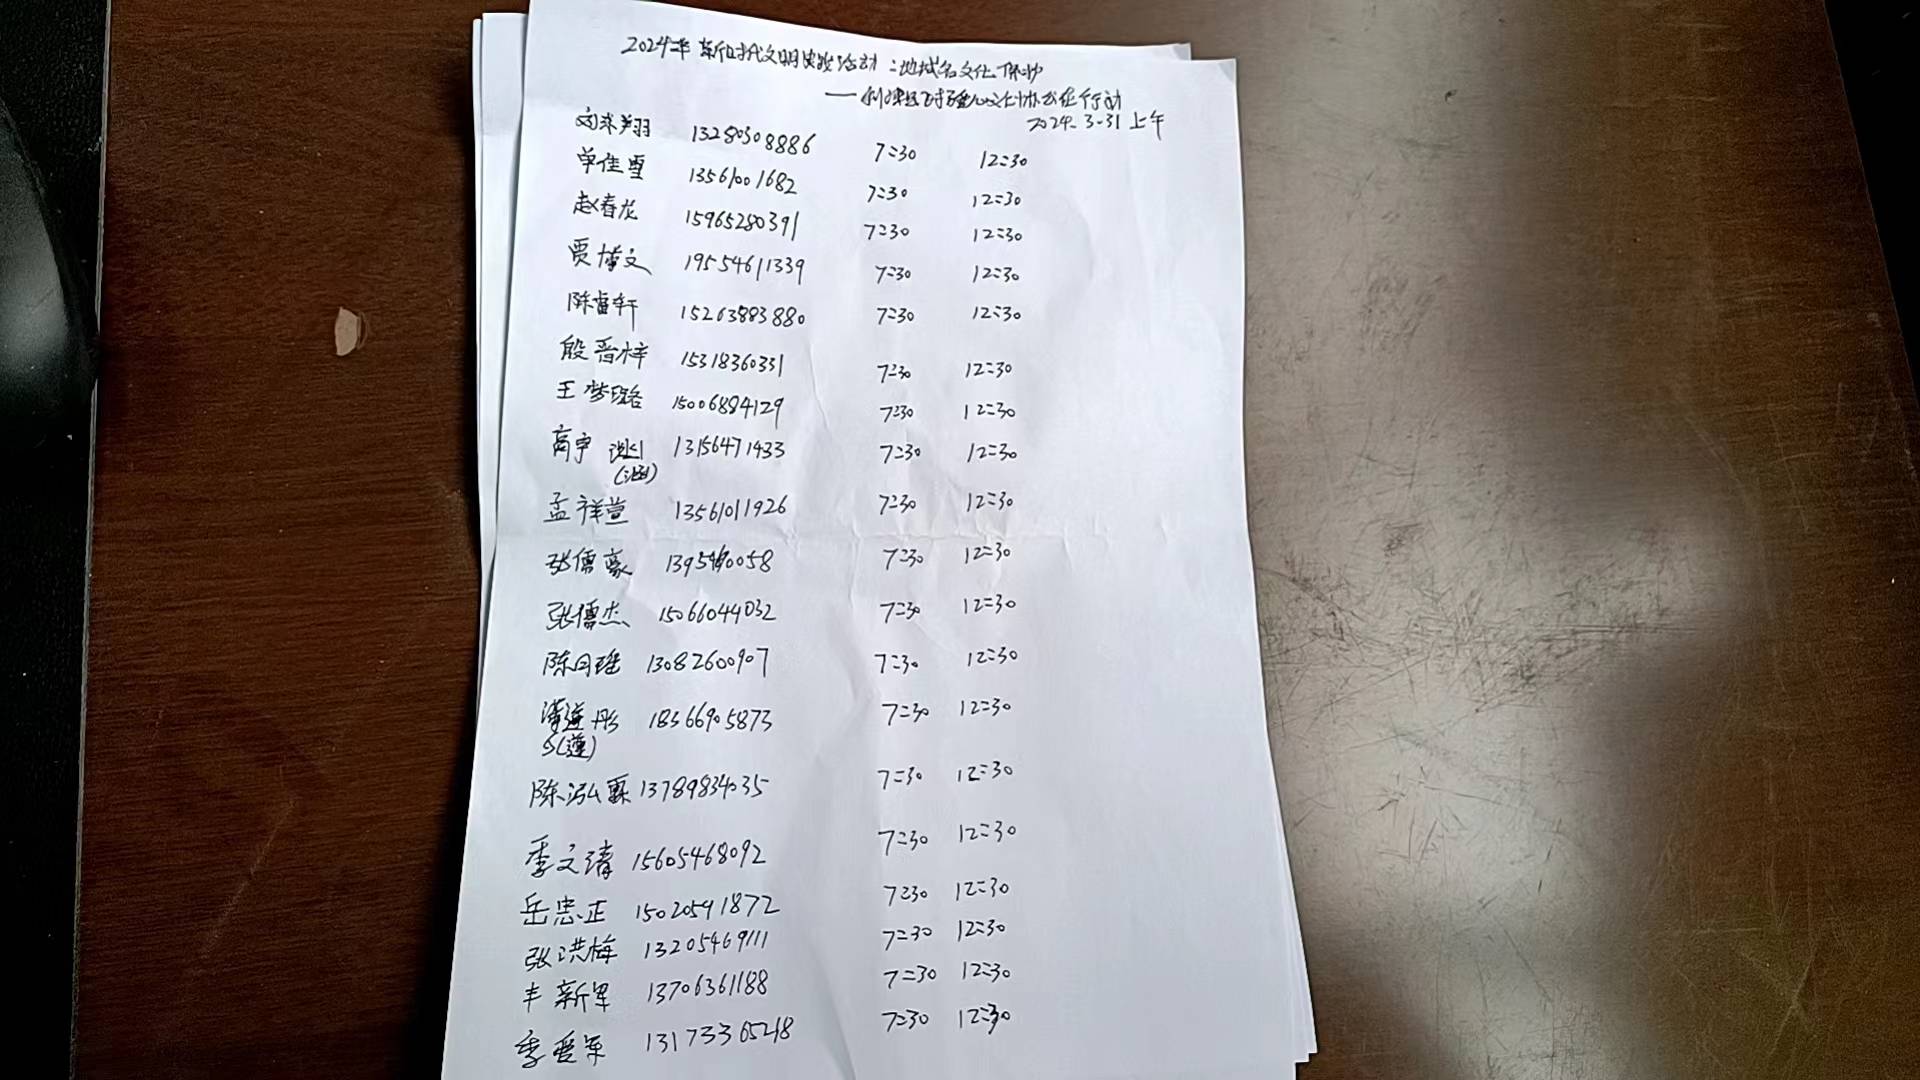 2024年新时代文明实践活动:地域名文化保护
——利津县 行动
2024.3-31上午
刘来翔 13280308886 7:30 12:30
单佳雪 13561001682 7:30 12:30
赵春龙 15965280391 7:30 12:30
贾博文 19554611339 7:30 12:30
陈富轩 15263883880 7:30 12:30
殷晋梓 15318360331 7:30 12:30
王梦璐 15006884129 7:30 12:30
高宇 13156471433 7:30 12:30
(涵)
孟祥萱 13561011926 7:30 12:30
张儒豪 7:30 12:30
张儒杰 15066044032 7:30 12:30
陈月瑶 13082600907 7:30 12:30
莲彤 18366905873 7:30 12:30
(莲)
陈泓霖 13789834035 7:30 12:30
李文清 15605468092 7:30 12:30
岳忠正 15020591872 7:30 12:30
张洪梅 13205469111 7:30 12:30
丰新军 13706361188 7:30 12:30
李爱军 13173365248 7:30 12:30